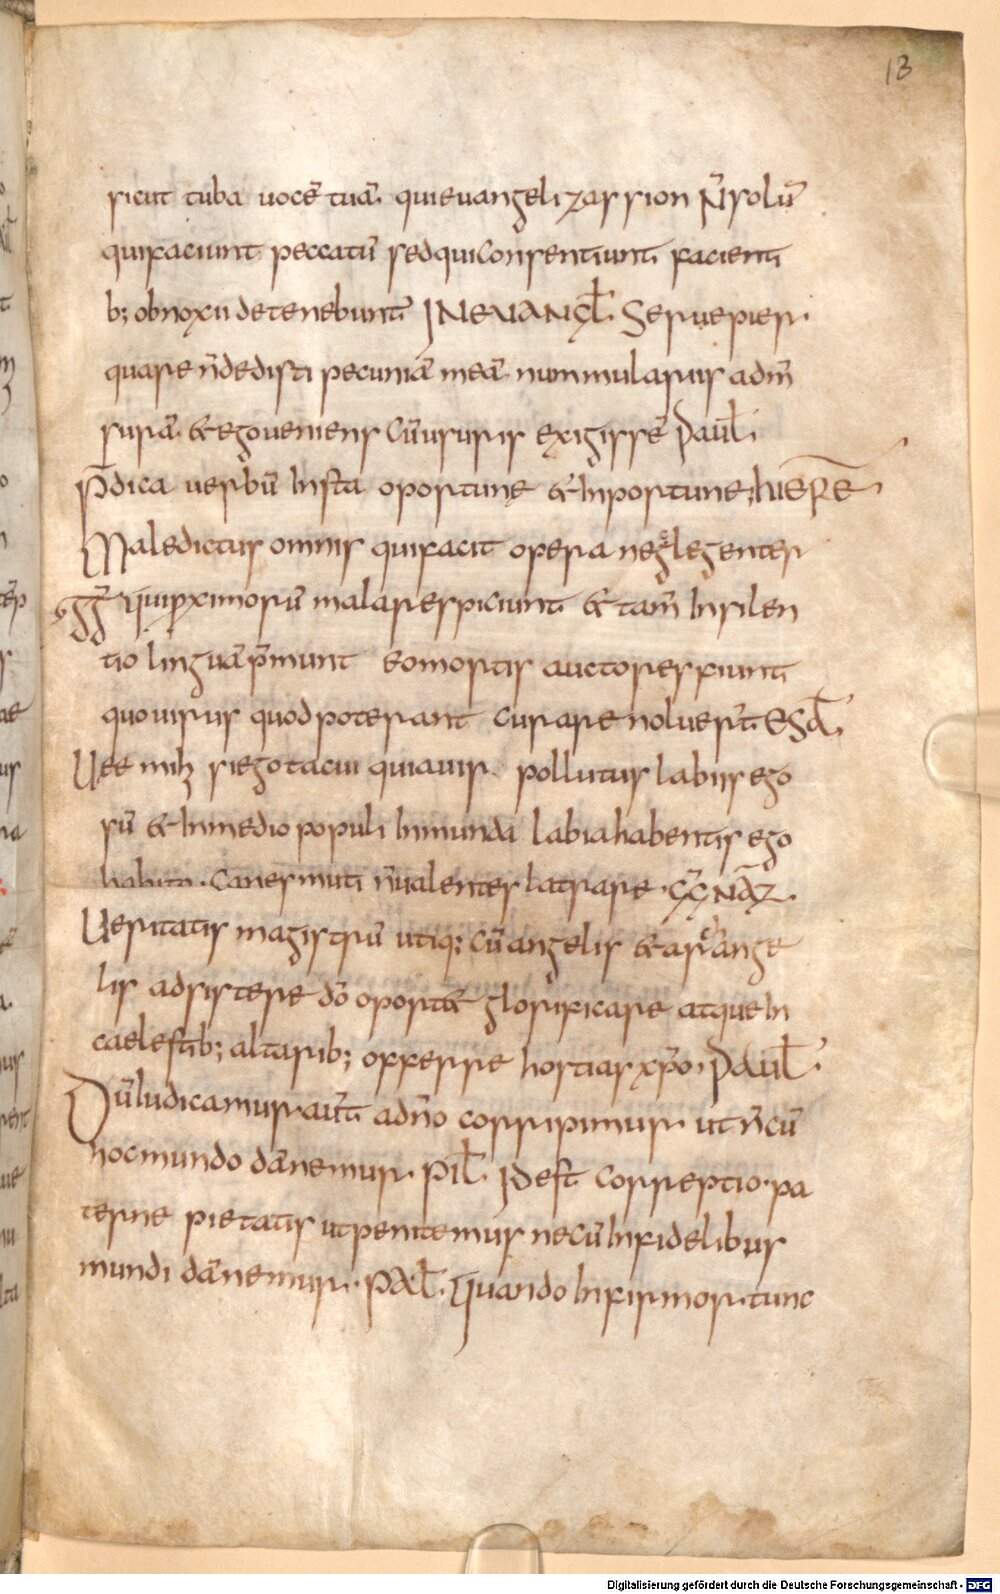 13
sicut tuba uocē tuā. qui euangelizas sion N̄ solū
qui faciunt peccatū sed qui consentiunt facienti
b; obnoxii detenebunt̄ IN EUANGL̄. Serue piger
quare n̄ dedisti pecuniā meā nummulariis ad m̄
surā. & ego ueniens cū usuris exigissē Paul̄.
P̄dica uerbū Insta oportune & Inportune; hIERE.
Maledictus omnis qui facit opera neglegenter
ḡḡ Qui ꝓximorū mala respiciunt & tam̄ In silen
tio linguā p̄munt eo mortis auctores fiunt
quo uirus quod poterant curare noluer̄t ESA.
Uee mihi si ego tacui quia uir pollutus labiis ego
sū & In medio populi Inmunda labia habentis ego
habito. Canes muti n̄ ualentes latrare. G̅G̅ NAZ.
Ueritatis magistrū utiq; cū angelis & archange
lis adsistere dō oport& glorificare atque In
caelestib; altarib; offerre hostias xp̄o. PAUL̄.
Dū Iudicamur aūt a dn̄o corripimur. ut n̄ cū
hoc mundo dānemur. PIL̄. Id est correptio. pa
terne pietatis ut penitemus ne cū Infidelibus
mundi dānemur. PAL̄. Quando Infirmor. tunc
Digitalisierung gefördert durch die Deutsche Forschungsgemeinschaft - DFG